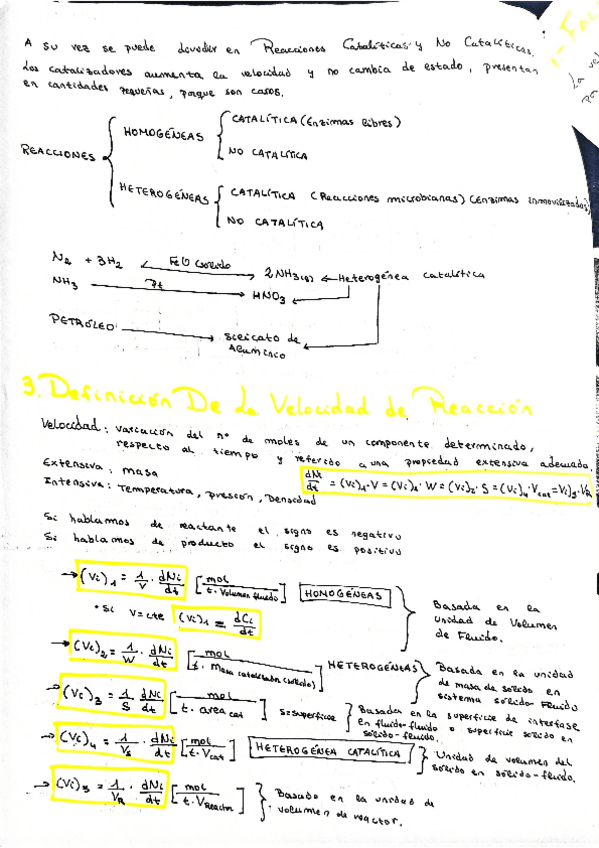 A su vez se puede dividir en Reacciones Catalíticas y No Catalíticas.
Los catalizadores aumenta la velocidad y no cambia de estado, presentan
en cantidades pequeñas, porque son caros.
REACCIONES
HOMOGÉNEAS
CATALÍTICA (Enzimas libres)
NO CATALÍTICA
HETEROGÉNEAS
CATALÍTICA (Reacciones microbianas) (Enzimas inmovilizadas)
NO CATALÍTICA
N2 + 3H2 FeO (sólido) 2NH3(g) ← Heterogénea catalítica
NH3 Pt HNO3
PETRÓLEO → silicato de
Aluminio
3. Definición De La Velocidad de Reacción
Velocidad: variación del nº de moles de un componente determinado,
respecto al tiempo y referido a una propiedad extensiva adecuada.
Extensiva: masa
Intensiva: Temperatura, presión, Densidad
dNi/dt = (Vi)1·V = (Vi)2·W = (Vi)3·S = (Vi)4·Vcat = (Vi)5·VR
Si hablamos de reactante el signo es negativo
Si hablamos de producto el signo es positivo
→ (Vi)1 = 1/V · dNi/dt [mol / t·Volumen fluido] HOMOGÉNEAS
• Si V=cte (Vi)1 = dCi/dt
Basada en la
unidad de Volumen
de Fluido.
→ (Vi)2 = 1/W · dNi/dt [mol / t·Masa catalizador (sólido)] HETEROGÉNEAS
Basada en la unidad
de masa de sólido en
sistema sólido-Fluido
→ (Vi)3 = 1/S dNi/dt [mol / t·area cat] S=superficie
Basada en la superficie de interfase
en fluido-fluido o superficie sólido en
sólido-fluido.
→ (Vi)4 = 1/Vs · dNi/dt [mol / t·Vcat] HETEROGÉNEA CATALÍTICA
Unidad de volumen del
sólido en sólido-fluido.
→ (Vi)5 = 1/VR · dNi/dt [mol / t·VReactor]
Basado en la unidad de
volumen de reactor.